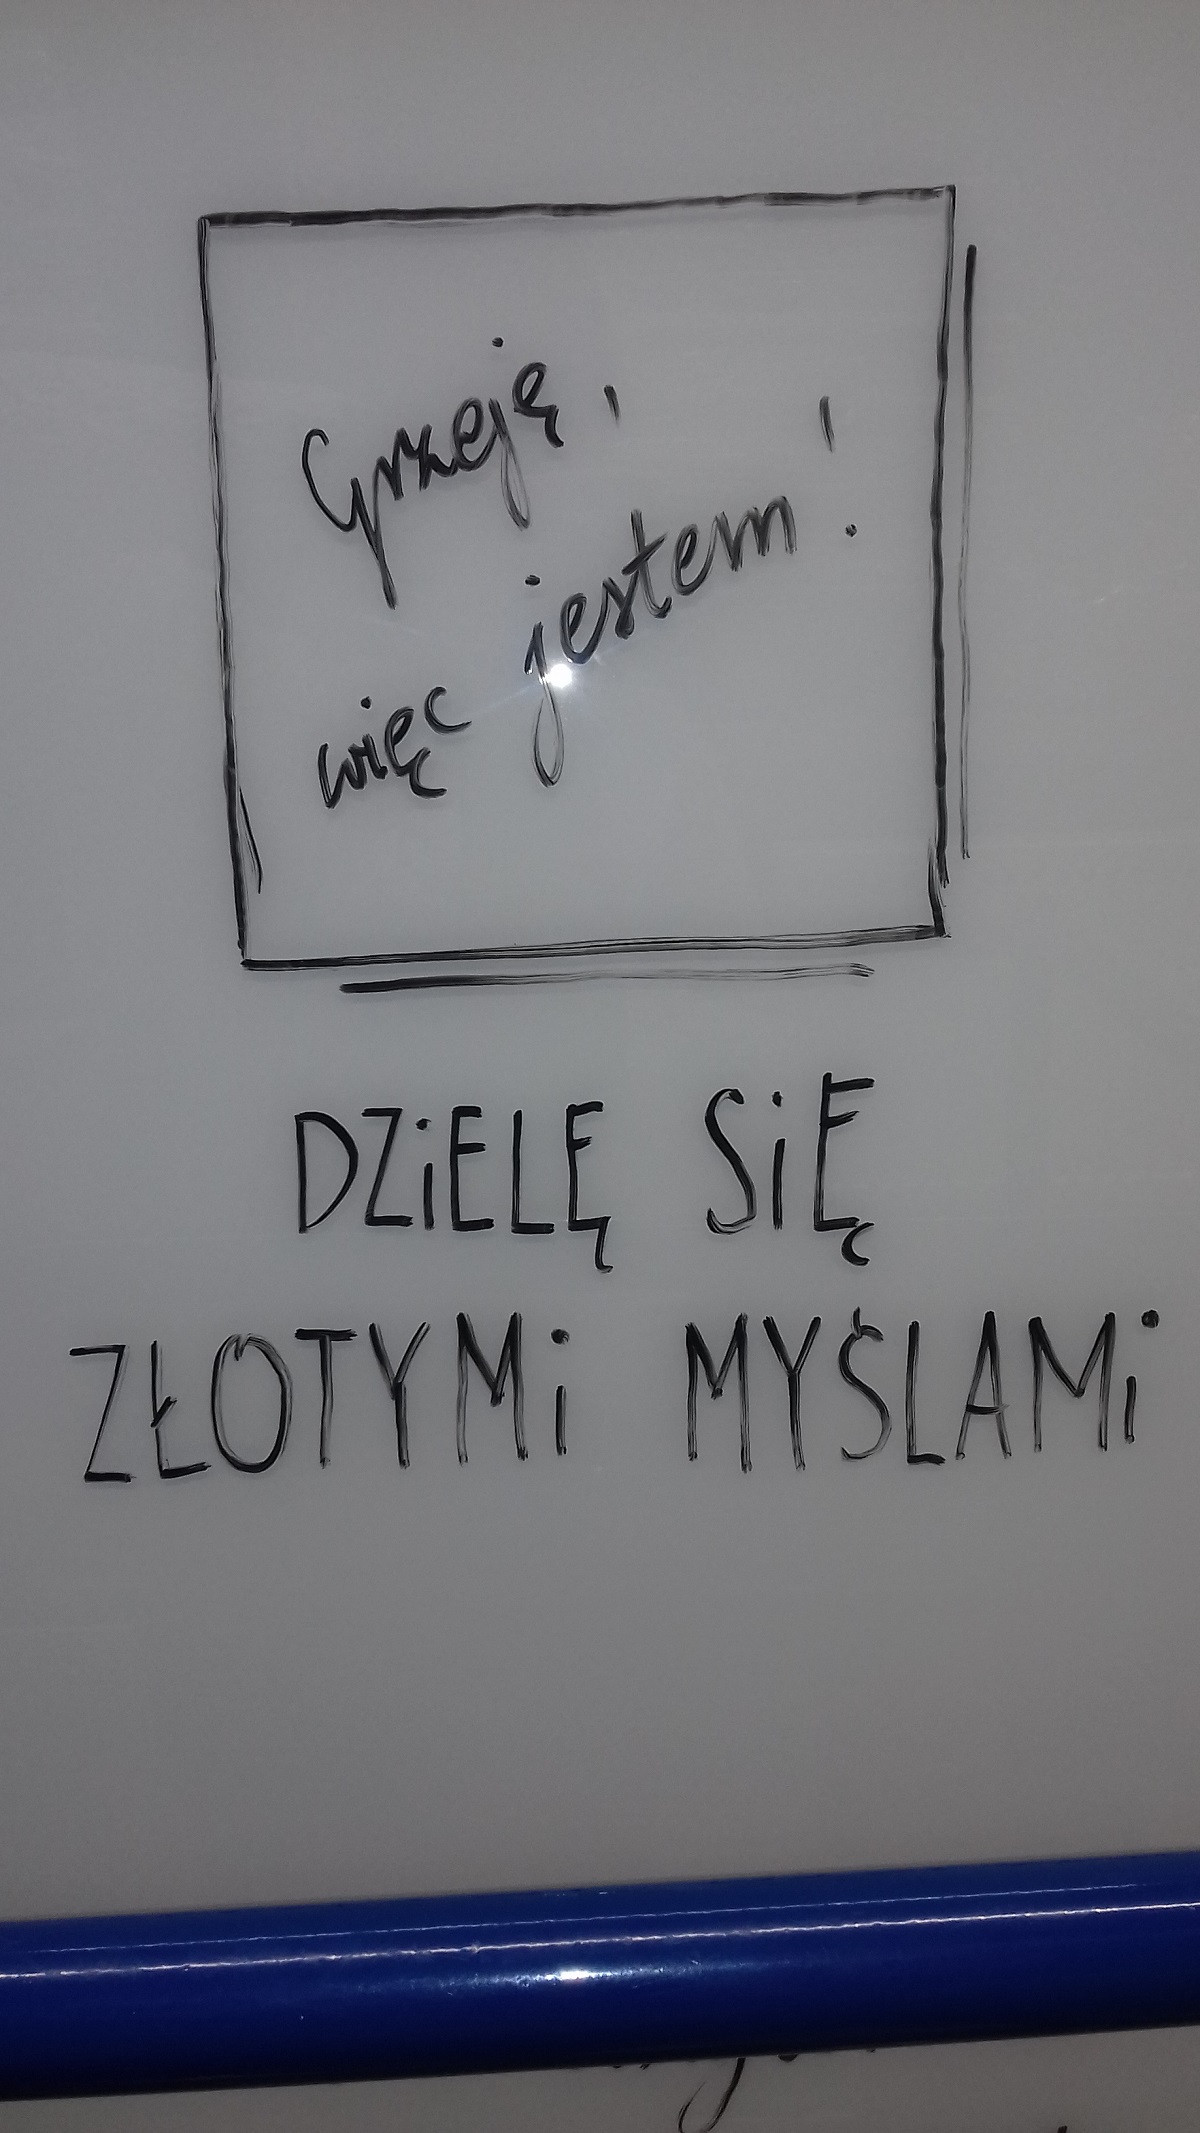 Grzeję,
więc jestem!
DZiELĘ SiĘ
ZŁOTYMi MYŚLAMi